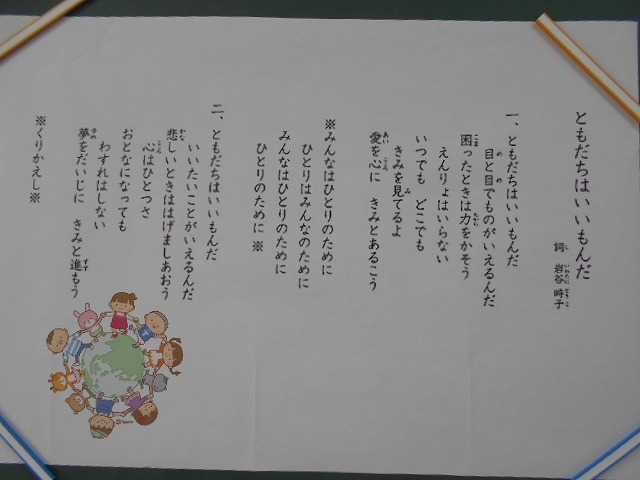 ともだちはいいもんだ
詞 岩谷 時子
一、ともだちはいいもんだ
目と目でものがいえるんだ
困ったときは力をかそう
えんりょはいらない
いつでも どこでも
きみを見てるよ
愛を心に きみとあるこう
※みんなはひとりのために
ひとりはみんなのために
みんなはひとりのために
ひとりのために ※
二、ともだちはいいもんだ
いいたいことがいえるんだ
悲しいときははげましあおう
心はひとつさ
おとなになっても
わすれはしない
夢をだいじに きみと進もう
※くりかえし※